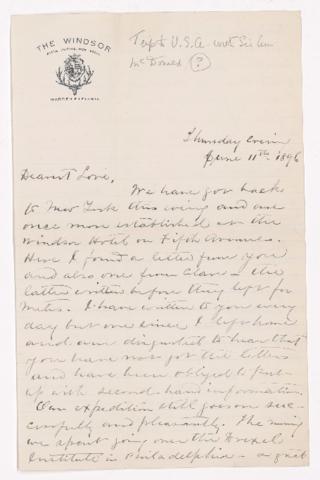 THE WINDSOR
Trip to U.S.A. with Sir Wm
McDonald ?
Thursday Evening
June 11th 1896
Dearest Love,
We have got back
to New York this evening and are
once more established at the
Windsor Hotel on Fifth Avenue.
Here I found a letter from you
and also one from Clare - the
latter written before they left for
Metis. I have written to you every
day but one since I left home
and am disgusted to hear that
you have not got the letters
and have been obliged to put
up with second hand information.
Our expedition still goes on suc-
cessfully and pleasantly. The morning
we spent going over the Drexel
Institute in Philadelphia - a great